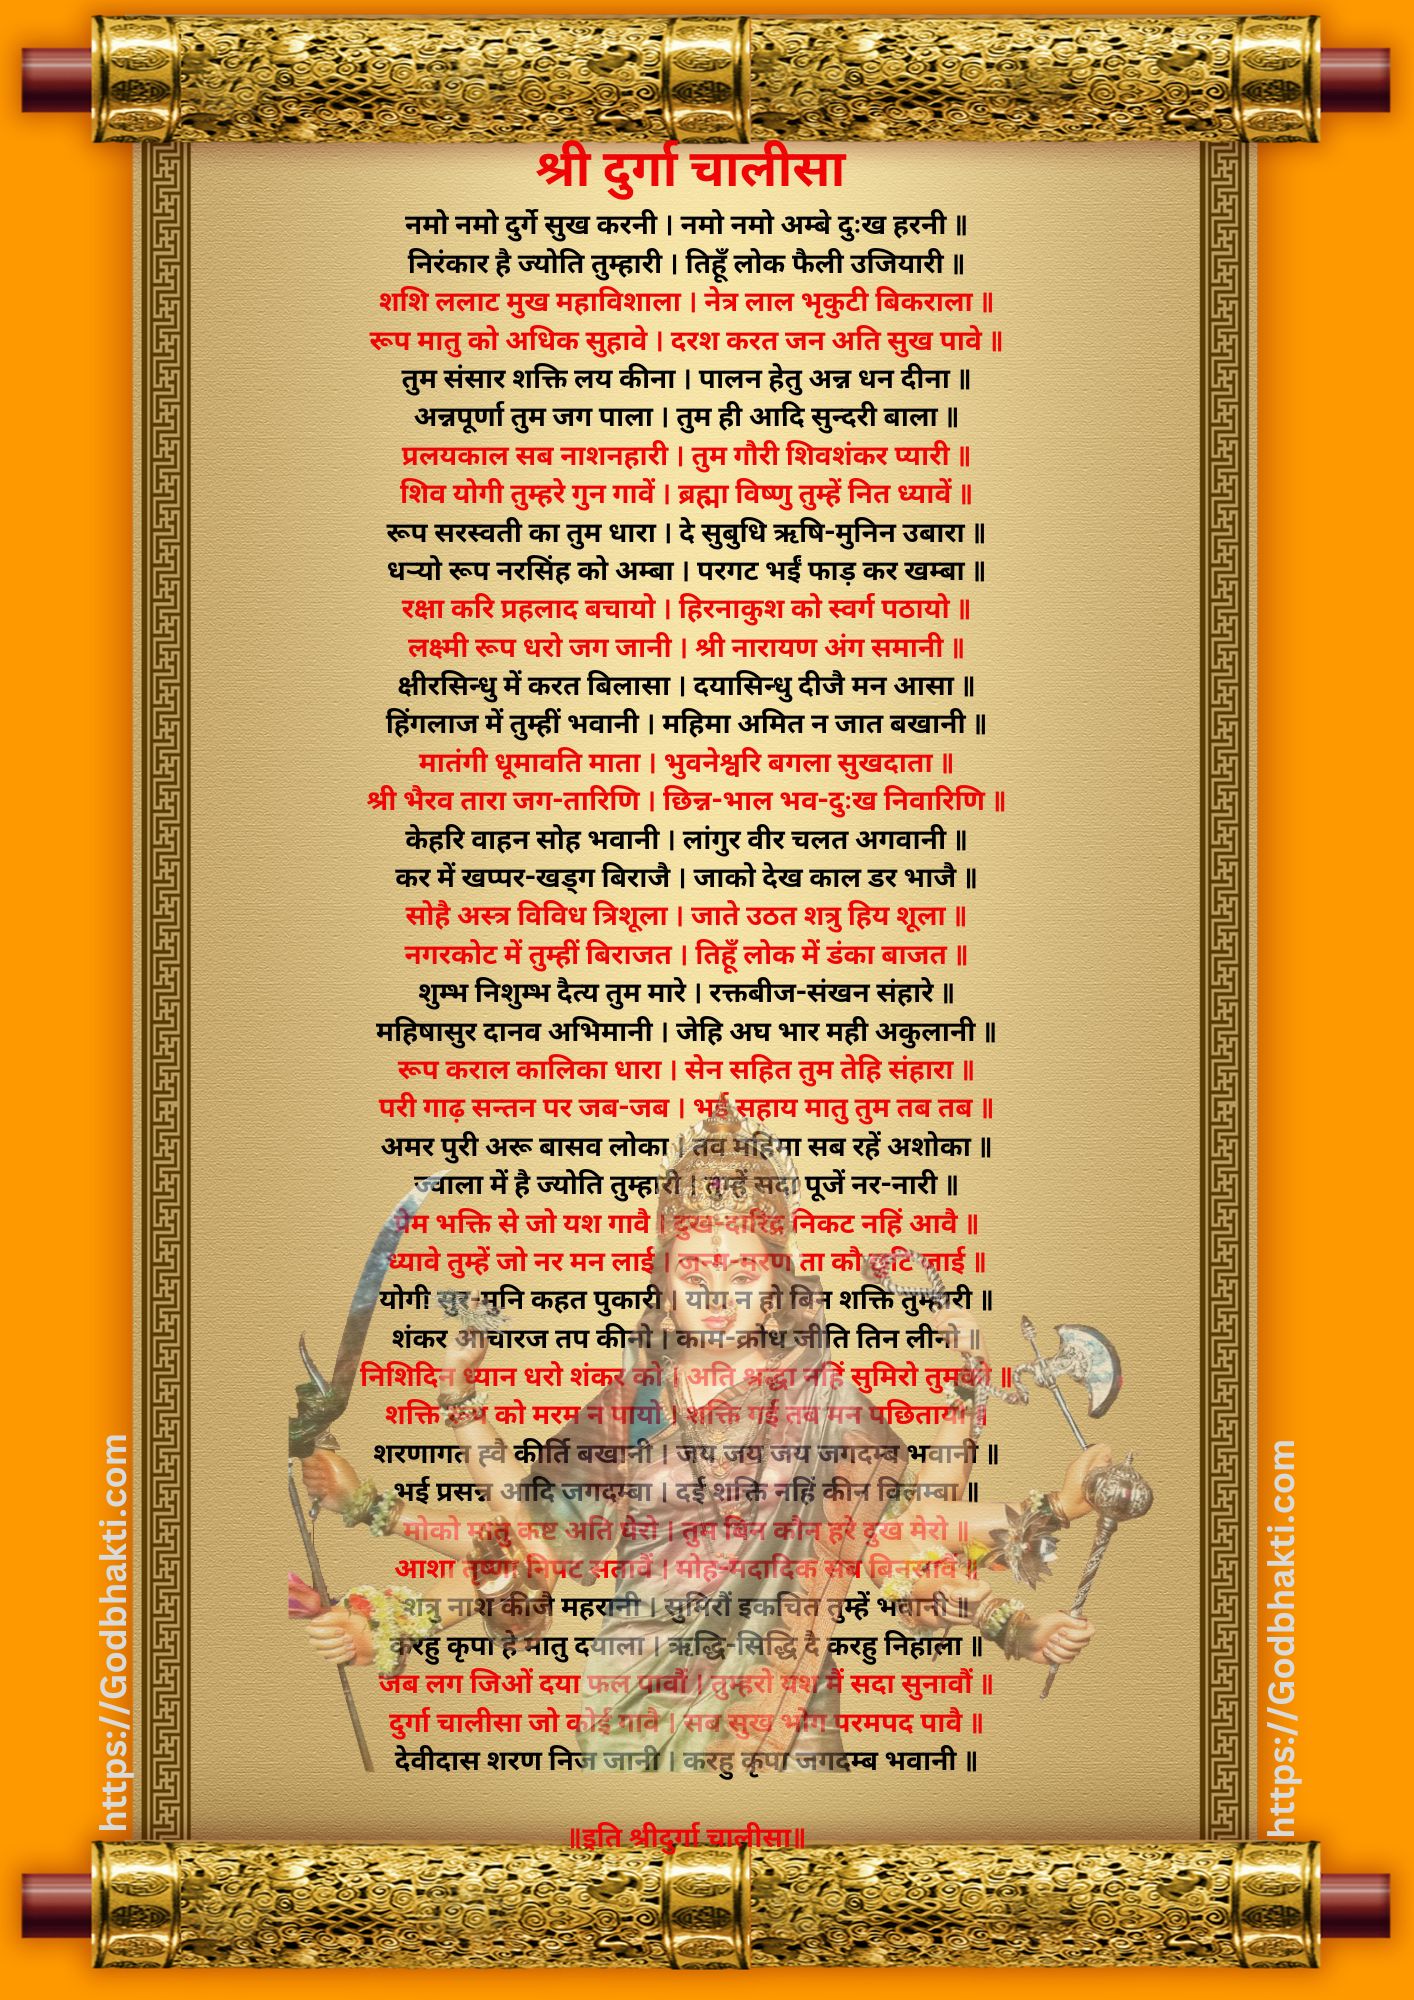 श्री दुर्गा चालीसा
नमो नमो दुर्गे सुख करनी । नमो नमो अम्बे दुःख हरनी ॥
निरंकार है ज्योति तुम्हारी । तिहूँ लोक फैली उजियारी ॥
शशि ललाट मुख महाविशाला । नेत्र लाल भृकुटी बिकराला ॥
रूप मातु को अधिक सुहावे । दरश करत जन अति सुख पावे ॥
तुम संसार शक्ति लय कीना । पालन हेतु अन्न धन दीना ॥
अन्नपूर्णा तुम जग पाला । तुम ही आदि सुन्दरी बाला ॥
प्रलयकाल सब नाशनहारी । तुम गौरी शिवशंकर प्यारी ॥
शिव योगी तुम्हरे गुन गावें । ब्रह्मा विष्णु तुम्हें नित ध्यावें ॥
रूप सरस्वती का तुम धारा । दे सुबुधि ऋषि-मुनिन उबारा ॥
धर्‍यो रूप नरसिंह को अम्बा । परगट भईं फाड़ कर खम्बा ॥
रक्षा करि प्रहलाद बचायो । हिरनाकुश को स्वर्ग पठायो ॥
लक्ष्मी रूप धरो जग जानी । श्री नारायण अंग समानी ॥
क्षीरसिन्धु में करत बिलासा । दयासिन्धु दीजै मन आसा ॥
हिंगलाज में तुम्हीं भवानी । महिमा अमित न जात बखानी ॥
मातंगी धूमावति माता । भुवनेश्वरि बगला सुखदाता ॥
श्री भैरव तारा जग-तारिणि । छिन्न-भाल भव-दुःख निवारिणि ॥
केहरि वाहन सोह भवानी । लांगुर वीर चलत अगवानी ॥
कर में खप्पर-खड्ग बिराजै । जाको देख काल डर भाजै ॥
सोहै अस्त्र विविध त्रिशूला । जाते उठत शत्रु हिय शूला ॥
नगरकोट में तुम्हीं बिराजत । तिहूँ लोक में डंका बाजत ॥
शुम्भ निशुम्भ दैत्य तुम मारे । रक्तबीज-संखन संहारे ॥
महिषासुर दानव अभिमानी । जेहि अघ भार मही अकुलानी ॥
रूप कराल कालिका धारा । सेन सहित तुम तेहि संहारा ॥
परी गाढ़ सन्तन पर जब-जब । भई सहाय मातु तुम तब तब ॥
अमर पुरी अरू बासव लोका । तव महिमा सब रहें अशोका ॥
ज्वाला में है ज्योति तुम्हारी । तुम्हें सदा पूजें नर-नारी ॥
प्रेम भक्ति से जो यश गावै । दुख-दारिद्र निकट नहिं आवै ॥
ध्यावे तुम्हें जो नर मन लाई । जन्म-मरण ता कौ छुटि जाई ॥
योगी सुर-मुनि कहत पुकारी । योग न हो बिन शक्ति तुम्हारी ॥
शंकर आचारज तप कीनो । काम-क्रोध जीति तिन लीनो ॥
निशिदिन ध्यान धरो शंकर को । अति श्रद्धा नहिं सुमिरो तुमको ॥
शक्ति रूप को मरम न पायो । शक्ति गई तब मन पछितायो ॥
शरणागत ह्वै कीर्ति बखानी । जय जय जय जगदम्ब भवानी ॥
भई प्रसन्न आदि जगदम्बा । दई शक्ति नहिं कीन विलम्बा ॥
मोको मातु कष्ट अति घेरो । तुम बिन कौन हरे दुख मेरो ॥
आशा तृष्णा निपट सतावैं । मोह-मदादिक सब बिनसावैं ॥
शत्रु नाश कीजै महरानी । सुमिरौं इकचित तुम्हें भवानी ॥
करहु कृपा हे मातु दयाला । ऋद्धि-सिद्धि दै करहु निहाला ॥
जब लग जिओं दया फल पावौं । तुम्हरो यश मैं सदा सुनावौं ॥
दुर्गा चालीसा जो कोई गावै । सब सुख भोग परमपद पावै ॥
देवीदास शरण निज जानी । करहु कृपा जगदम्ब भवानी ॥
॥इति श्रीदुर्गा चालीसा॥
https://Godbhakti.com
https://Godbhakti.com